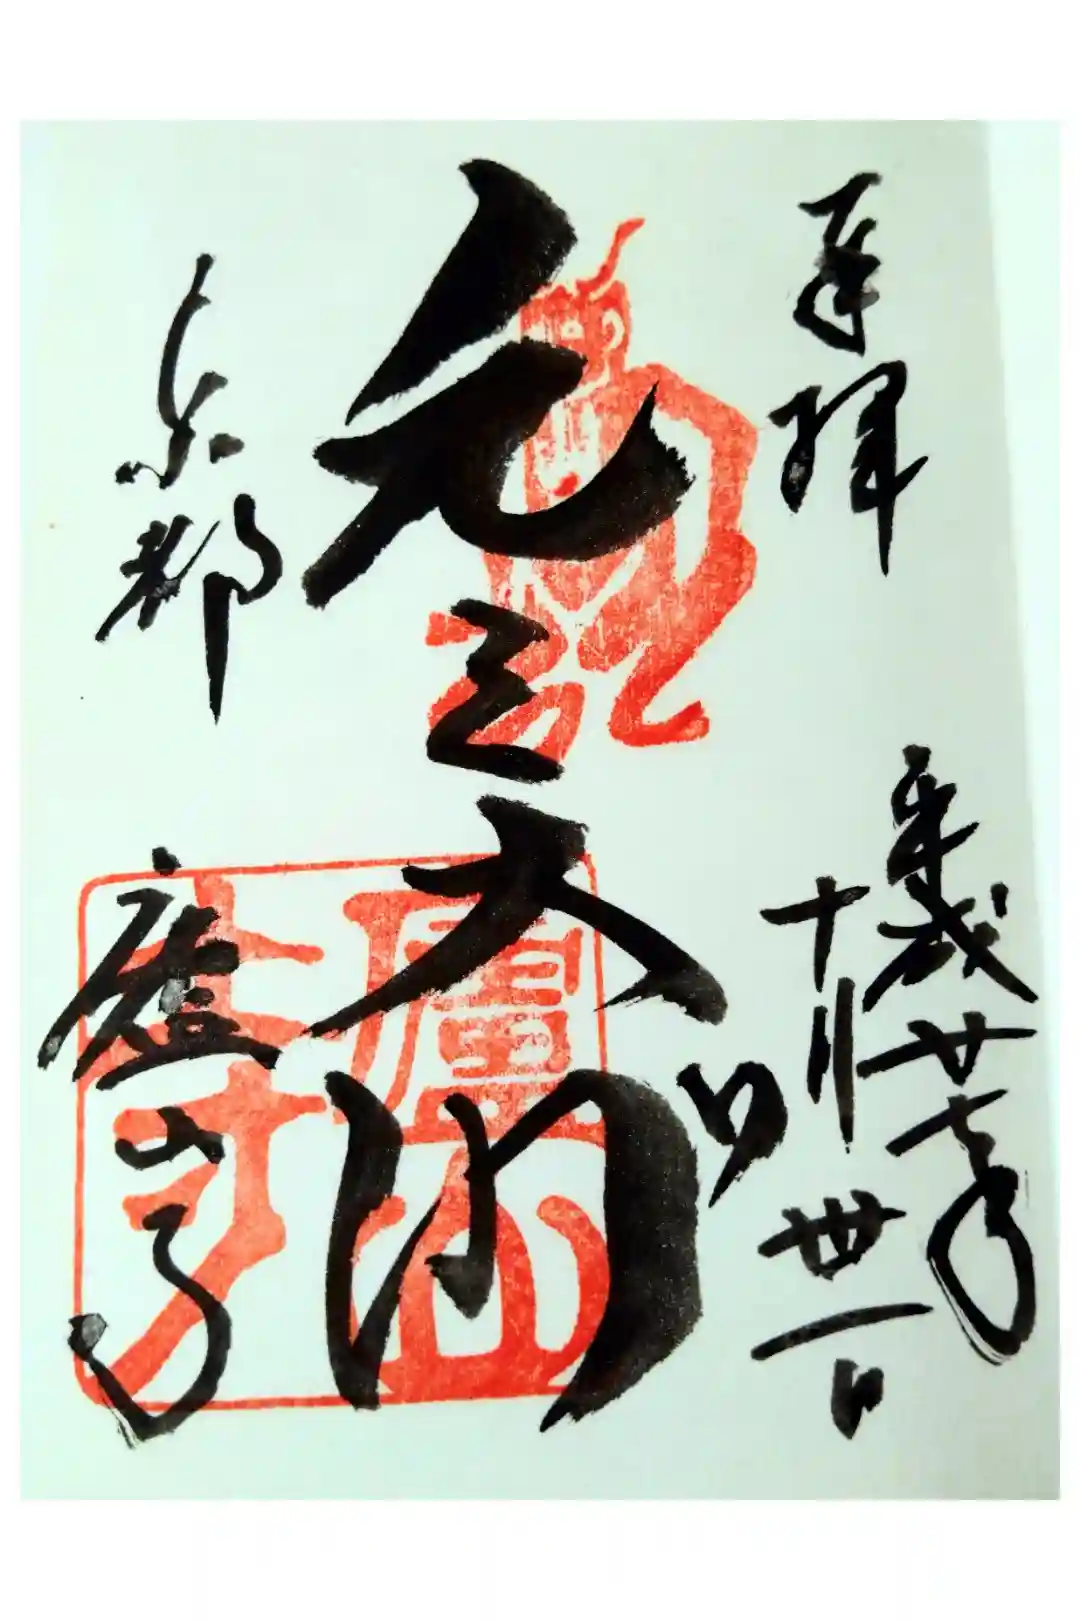 奉拝
平成廿七年
十月卅一日
元三大師
京都
廬山寺
廬山
寺